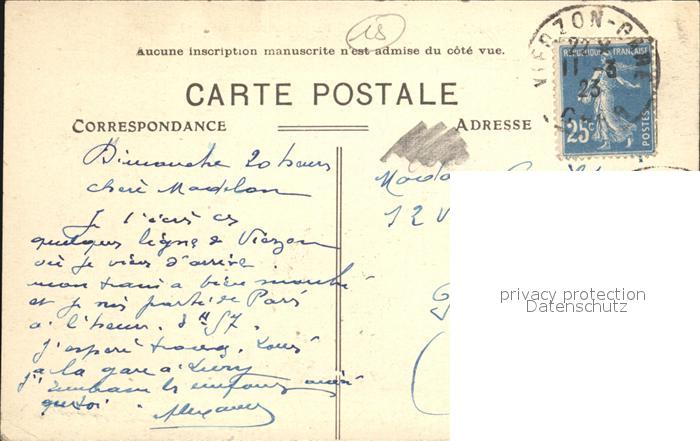 18
aucune inscription manuscrite n'est admise du côté vue.
VIERZON-GARE
11 - 3
23
REPUBLIQUE FRANÇAISE
25c
POSTES
CARTE POSTALE
CORRESPONDANCE
ADRESSE
Dimanche 20 heures
cheré Madelon
Je t'écris ces
quelques ligne de Vierzon
où je viens d'arrivé
mon train a bien marché
et je suis partie de Paris
a l'heure. 8 H 57.
j'esperé
a la gare a
j'embrasse les enfants ainsi
que toi.
12
privacy protection
Datenschutz